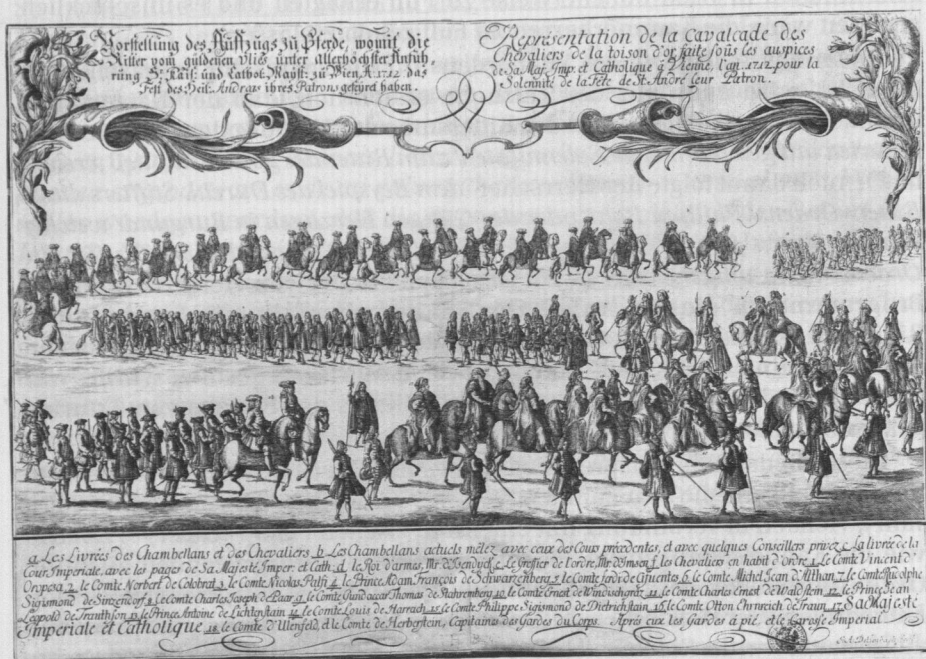 Vorstellung des Auffzugs zu Pferde, womit die
Ritter vom güldenen Vlies unter allerhöchster Anfüh-
rung Sr. Kais. und Cathol. Mayst. zu Wien A. 1712 das
Fest des Heil. Andrae ihres Patrons gefeyrd haben.
Représentation de la Cavalcade des
Chevaliers de la toison d'or faite sous les auspices
de Sa Maj. Imp. et Catholique à Vienne, l'an. 1712. pour la
Solemnité de la Fête de St. André leur Patron.
a Les Livrées des Chambellans et des Chevaliers b Les Chambellans actuels mêlez avec ceux des Cours précedentes, et avec quelques Conseillers privez c La livrée de la
Cour Imperiale, avec les pages de Sa Majesté Imper. et Cath. d le Roi d'armes, Mr de e Le Grefier de l'ordre Mr d'Imsen f les Chevaliers en habit d'ordre 1 Le Comte Vincent d'
Oropesa 2 le Comte Norbert de Colobrat 3 le Comte Nicolas Palfi 4 le Prince Adam François de Schwarzenberg 5 le Comte ferdi de Cifuentes 6 le Comte Michel Jean d'Althan 7 le Comte
Sigismond de Sinzendorf 8 le Comte Charles Joseph de Paar 9 le Comte Gundaccar Thomas de Stahremberg 10 le Comte Ernest de Windischgräz 11 le Comte Charles Ernest de Waldstein 12 le Prince Jean
Leopold de Trauthson 13 le Prince Antoine de Lichtenstain 14 le Comte Louis de Harrach 15 le Comte Philippe Sigismond de Dietrichstain 16 le Comte Otton Ehrnreich de Traun 17 Sa Majesté
Imperiale et Catholique 18 le Comte d'Ulenfeld, et le Comte de Herberstein, Capitaines des Gardes du Corps. Après eux les Gardes à pié, et le Carosse Imperial